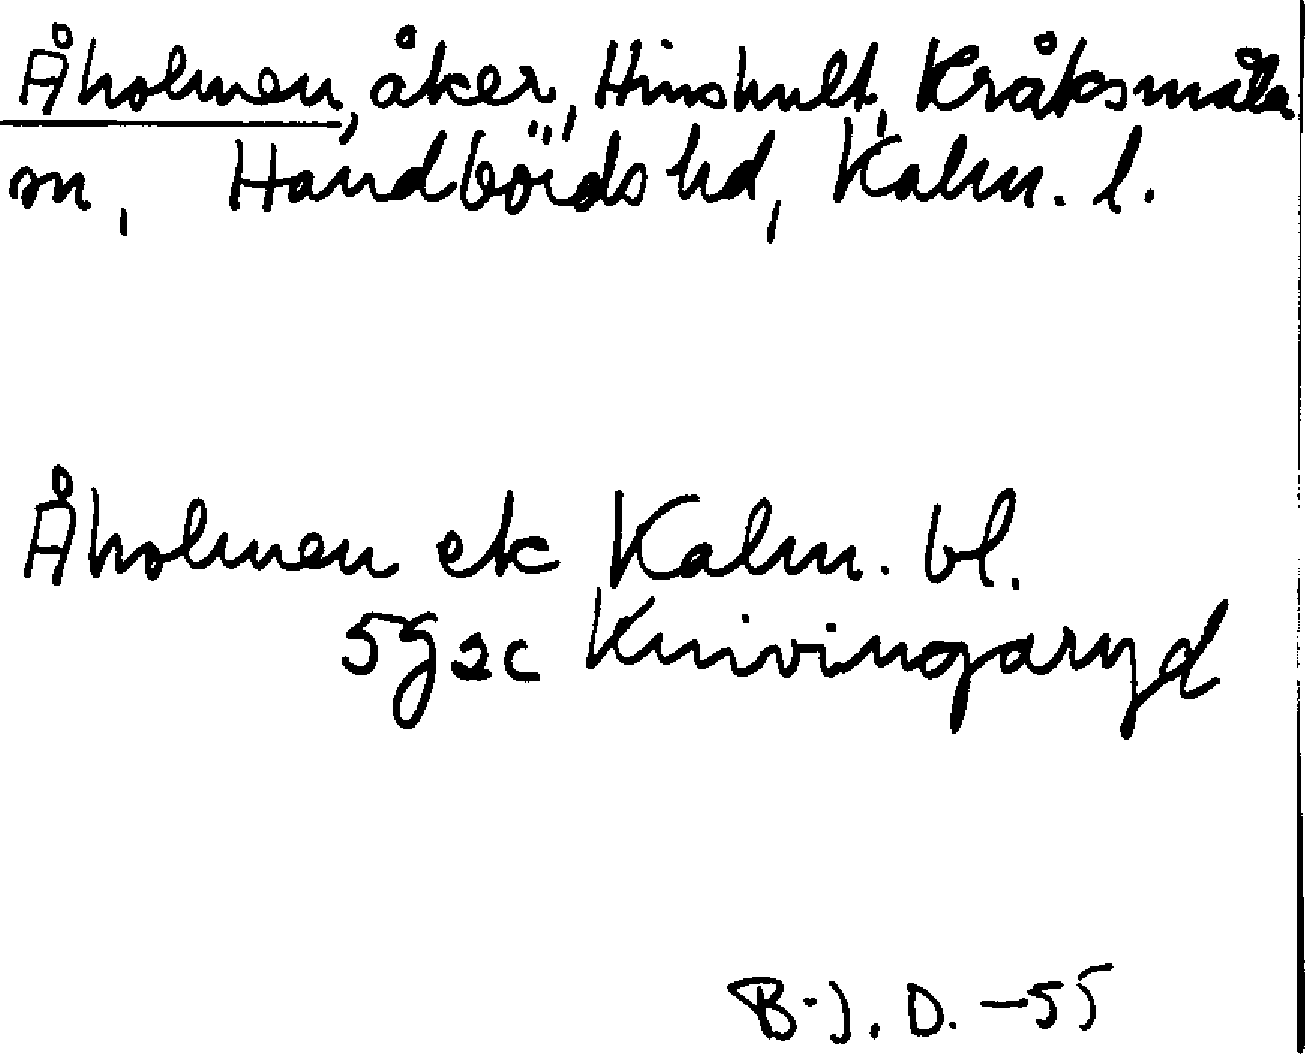 Åholmen, åker, Hinshult, Kråksmåla
sn, Handbörds hd, Kalm. l.
Åholmen ek Kalm. bl.
5g2c Knivingaryd
B-J. D. -55